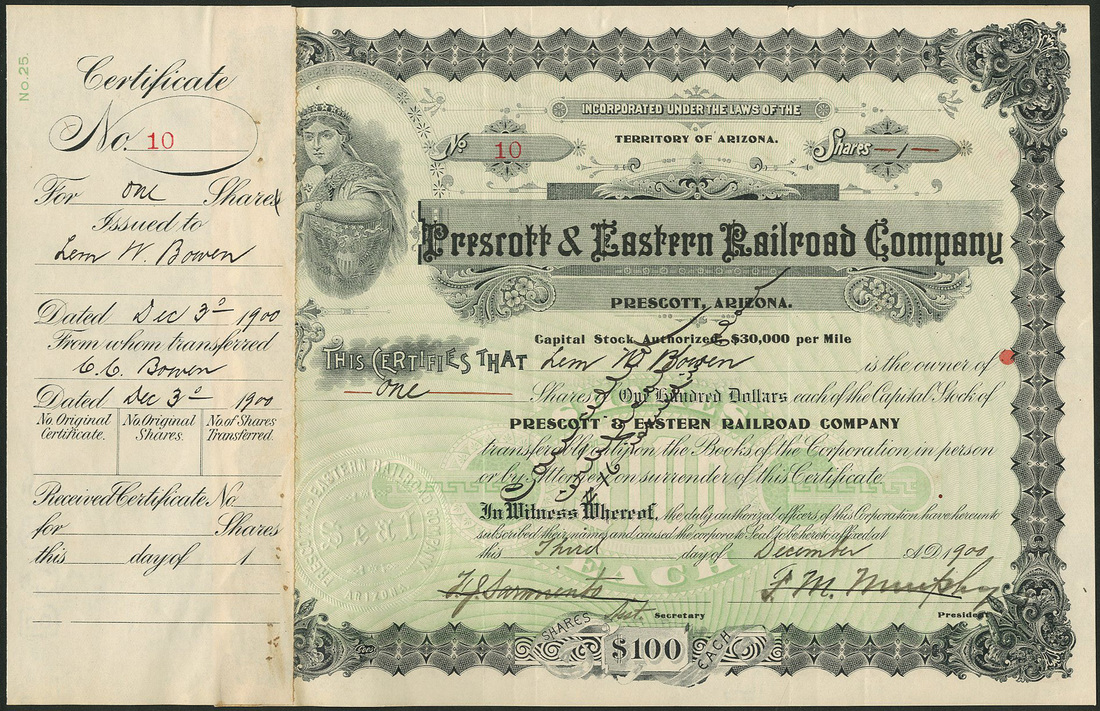 No. 25.
Certificate
No. 10
For one Shares
Issued to
Lem W. Bowen
Dated Dec 3d 1900
From whom transferred
C. C. Bowen
Dated Dec 3d 1900
No. Original Certificate.
No. Original Shares.
No. of Shares Transferred.
Received Certificate No
for Shares
this day of 1
INCORPORATED UNDER THE LAWS OF THE
TERRITORY OF ARIZONA.
No 10
Shares 1
Prescott & Eastern Railroad Company
PRESCOTT, ARIZONA.
Capital Stock Authorized, $30,000 per Mile
THIS CERTIFIES THAT Lem W. Bowen is the owner of
one Shares of One Hundred Dollars each of the Capital Stock of
PRESCOTT & EASTERN RAILROAD COMPANY
transferable only upon the Books of the Corporation in person
or by Attorney on surrender of this Certificate.
In Witness Whereof, the duly authorized officers of this Corporation have hereunto
subscribed their names and caused the corporate Seal to be hereto affixed at
this Third day of December A.D. 1900
F. M. Murphy
Asst. Secretary
President
SHARES $100 EACH
SHARES
$100
EACH
PRESCOTT & EASTERN RAILROAD COMPANY
Seal
ARIZONA